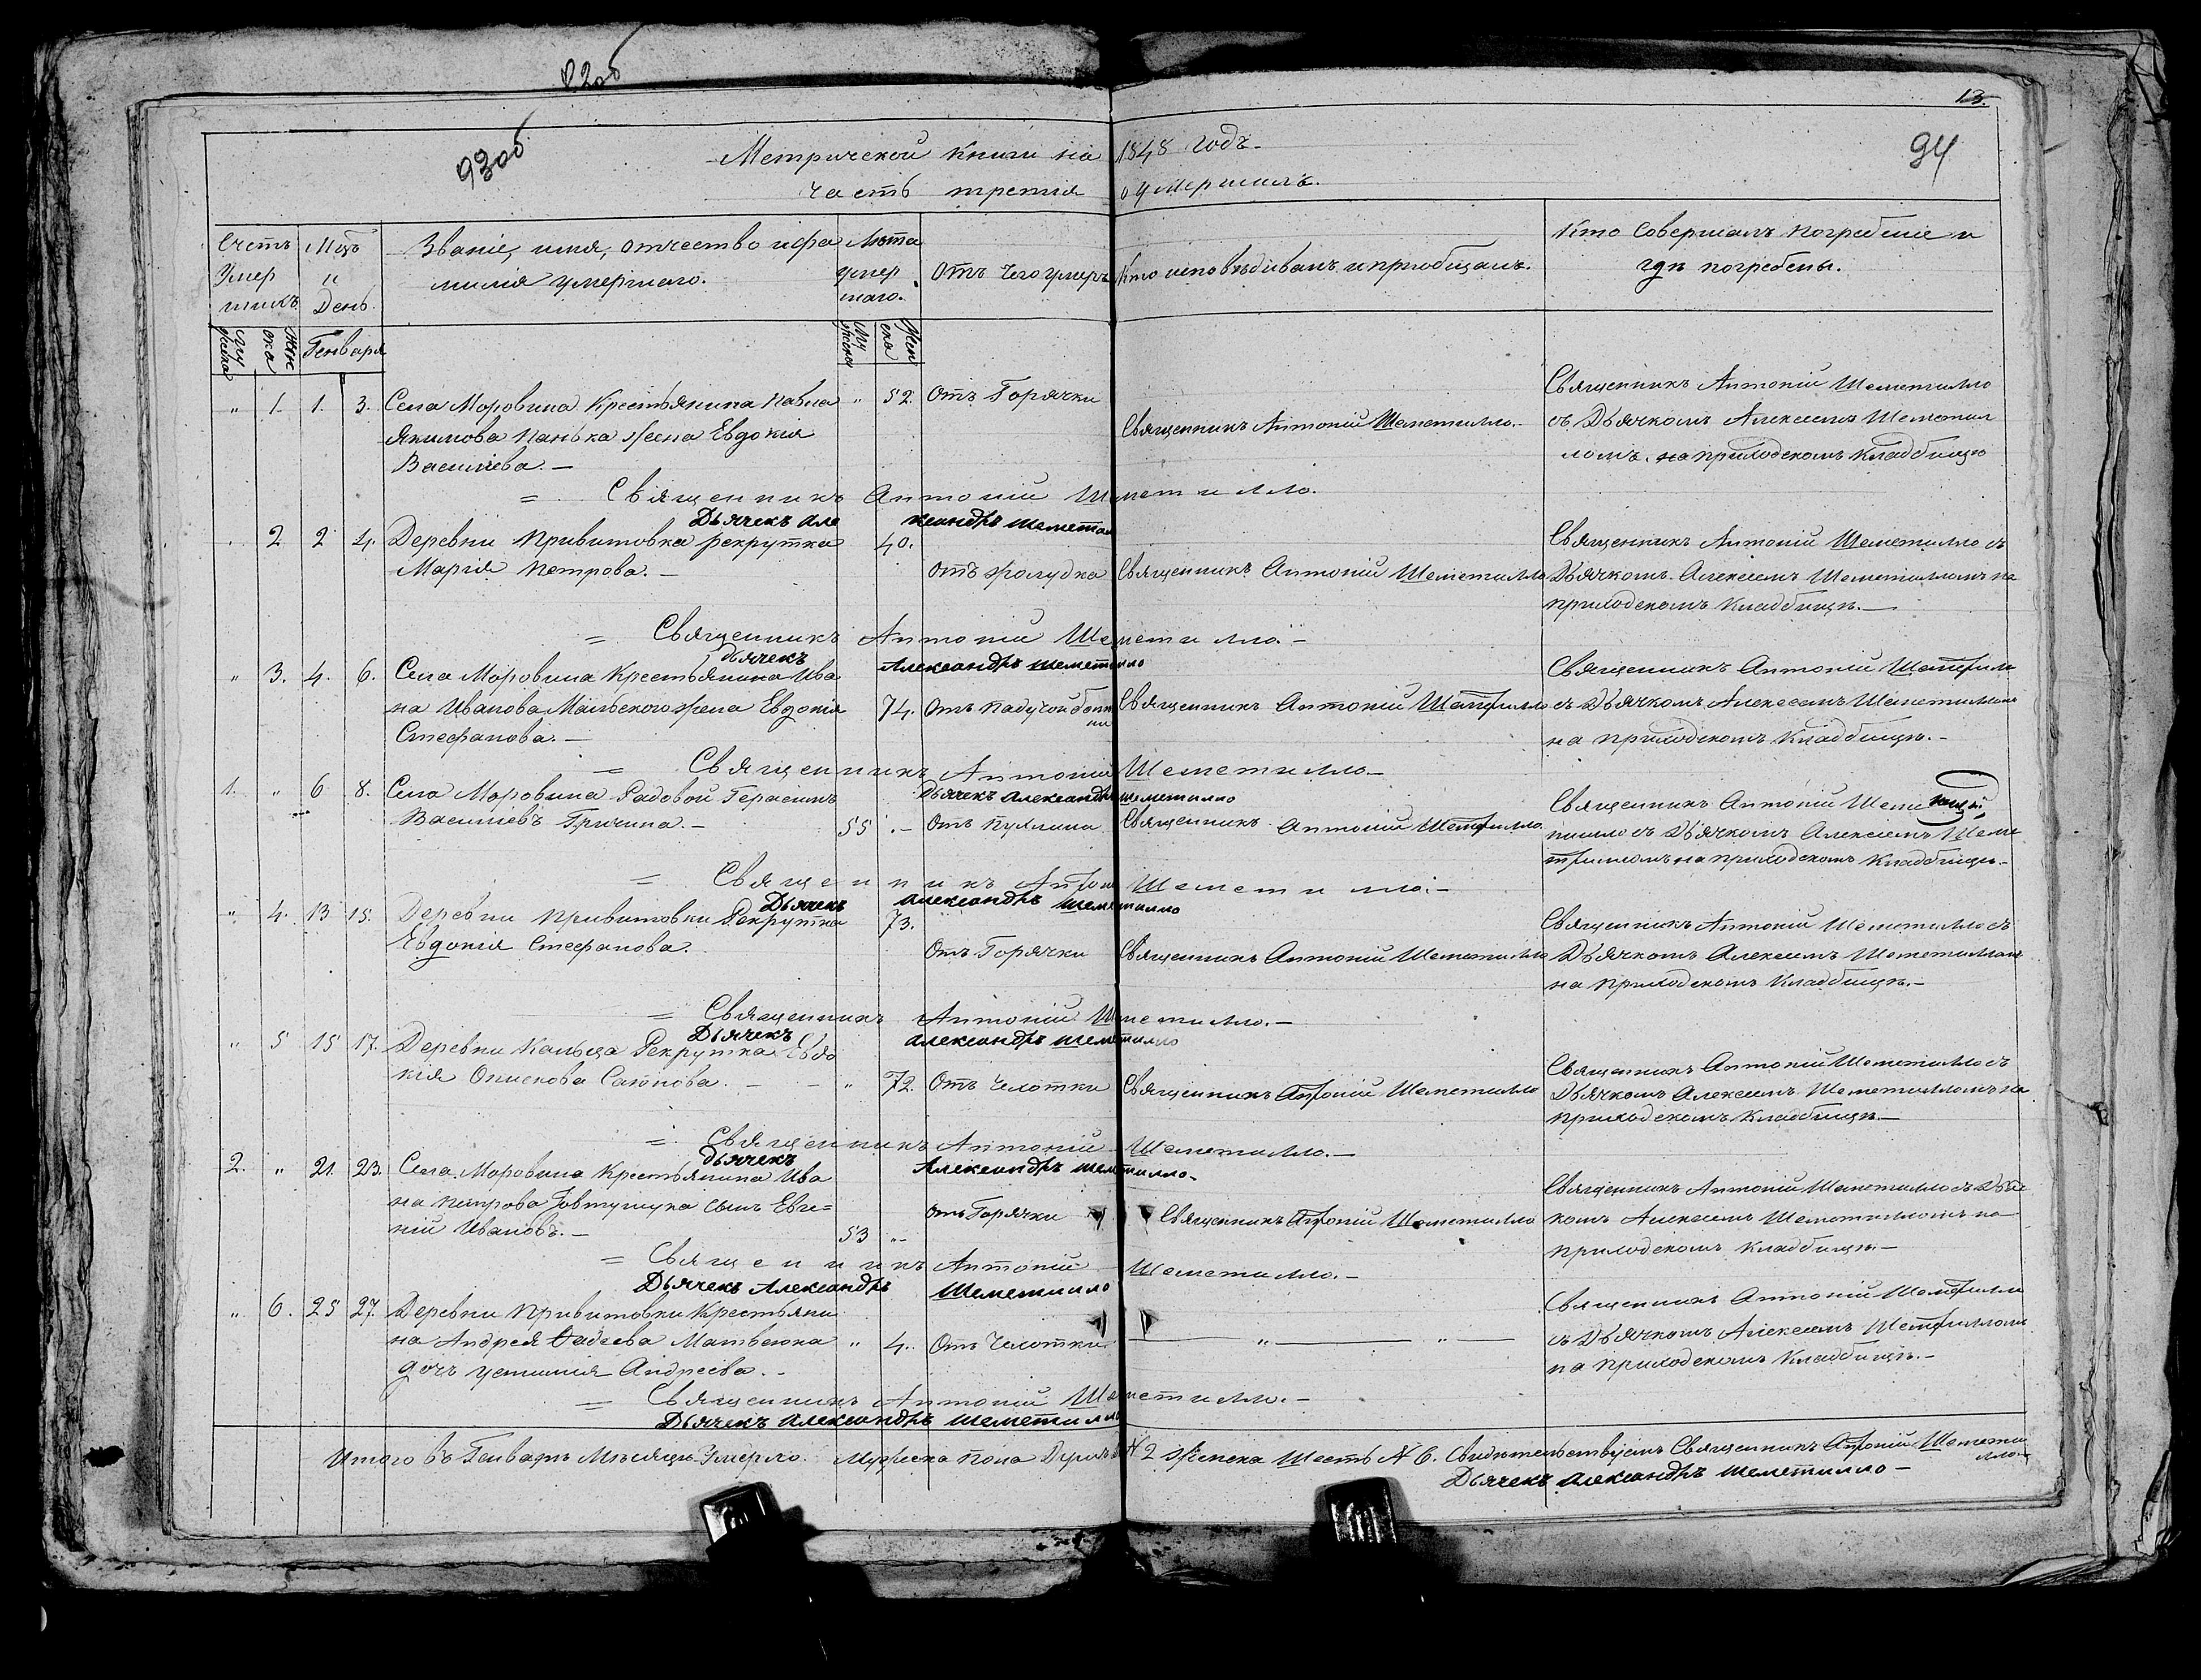 13.
93об
94
Метрической книги на 1848 годъ.
часть третiя о умершихъ.
Счетъ умершихъ
Мцъ и День
Званiе, имя, отчество и фамилiя умершаго.
Лѣта умершаго.
Отъ чего умеръ
Кто исповѣдивалъ и прiобщалъ.
Кто совершалъ погребенiе и
гдѣ погребены.
Мужска
Женска
Генваря
Мужска
Женска
" 1. 1. 3. Села Моровина Крестьянина Павла " 52. Отъ Горячки
Якимова Панька жена Евдокiя
Василiева. —
Священникъ Антонiй Шеметилло. —
Священникъ Антонiй Шеметилло
съ Дьячкомъ Алексѣемъ Шеметил
ломъ. на приходскомъ кладбищѣ
= Священникъ Антонiй Шеметилло.
Дьячекъ Александръ Шеметилло
2 2 4. Деревни Привитовка рекрутка 40.
Марiя Петрова. — Отъ желудка Священникъ Антонiй Шеметилло
Священникъ Антонiй Шеметилло съ
Дьячкомъ Алексѣемъ Шеметилломъ на
приходскомъ кладбищѣ. —
= Священникъ Антонiй Шеметилло. —
дьячекъ Александръ Шеметилло
" 3. 4. 6. Села Моровина Крестьянина Ива
на Иванова жена Евдокiя 74. Отъ падучой Священникъ Антонiй Шеметилло
Стефанова. —
Священникъ Антонiй Шеметилло
съ Дьячкомъ Алексѣемъ Шеметилломъ
на приходскомъ кладбищѣ. —
= Священникъ Антонiй Шеметилло —
дьячекъ Александръ Шеметилло
1. " 6 8. Села Моровина Радовой Герасимъ
Василiевъ Гричина. — 55 . — Священникъ Антонiй Шеметилло
Священникъ Антонiй Шеме
тилло съ Дьячкомъ Алексѣемъ Шеме
тилломъ на приходскомъ кладбищѣ. —
= Священникъ Антонiй Шеметилло. —
Дьячекъ Александръ Шеметилло
" 4. 13 15. Деревни Привитовки Рекрутка 73.
Евдокiя Стефанова. Отъ Горячки Священникъ Антонiй Шеметилло
Священникъ Антонiй Шеметилло съ
Дьячкомъ Алексѣемъ Шеметилломъ
на приходскомъ кладбищѣ. —
= Священникъ Антонiй Шеметилло. —
Дьячекъ Александръ Шеметилло
" 5 15 17. Деревни Кальца Рекрутка Евдо
кiя " 72. Отъ Чахотки Священникъ Антонiй Шеметилло
Священникъ Антонiй Шеметилло съ
Дьячкомъ Алексѣемъ Шеметилломъ на
приходскомъ кладбищѣ. —
= Священникъ Антонiй Шеметилло. —
дьячекъ Александръ Шеметилло —
2. " 21. 23. Села Моровина Крестьянина Ива
на Петрова сынъ Евге= Отъ Горячки Священникъ Антонiй Шеметилло
нiй Ивановъ. — 53 " —
Священникъ Антонiй Шеметилло съ Дьяч
комъ Алексѣемъ Шеметилломъ на
приходскомъ кладбищѣ. —
= Священникъ Антонiй Шеметилло. —
Дьячекъ Александръ Шеметилло
" 6. 25 27. Деревни Привитовки Крестьяни
на Андрея Фадеева Матвеюка " 4. Отъ Чахотки — " — " —
дочъ Устинiя Андреева. —
Священникъ Антонiй Шеметилло
съ Дьячкомъ Алексѣемъ Шеметилломъ
на приходскомъ кладбищѣ. —
= Священникъ Антонiй Шеметилло. —
Дьячекъ Александръ Шеметилло
Итого въ Генварѣ Мѣсяцѣ умерло. Мужеска пола № 2 Женска Шесть № 6. Свидѣтельствуемъ Священникъ Антонiй Шемети
лло —
Дьячекъ Александръ Шеметилло —